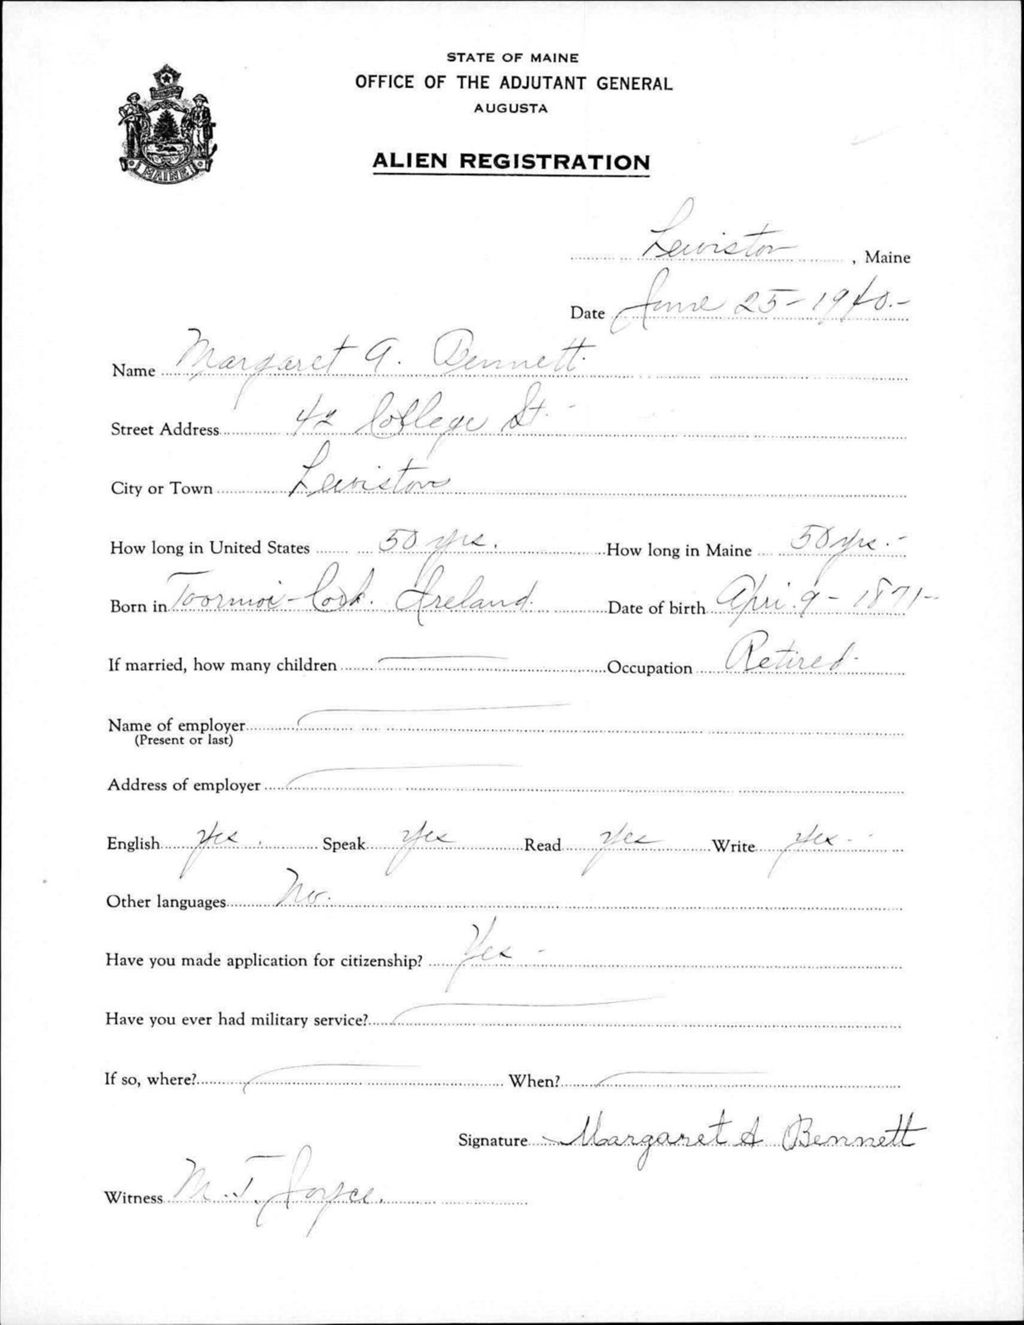 STATE OF MAINE
OFFICE OF THE ADJUTANT GENERAL
AUGUSTA
ALIEN REGISTRATION
MAINE
Lewiston, Maine
Date June 25-1940.-
Name Margaret A. Bennett.
Street Address 42 College St.-
City or Town Lewiston
How long in United States 50 yrs. How long in Maine 50 yrs.-
Born in Cork. Ireland. Date of birth Apri. 9-1871-
If married, how many children — Occupation Retired-
Name of employer —
(Present or last)
Address of employer —
English Yes. Speak Yes Read Yes Write Yes-
Other languages No.
Have you made application for citizenship? Yes-
Have you ever had military service? —
If so, where? — When? —
Signature Margaret A Bennett
Witness M. T. Joyce.